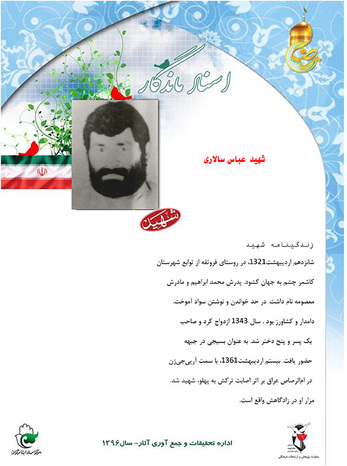 اسناد ماندگار
شهید عباس سالاری
شهید
زندگینامه شهید
شانزدهم اردیبهشت1321، در روستای فروتقه از توابع شهرستان
کاشمر چشم به جهان گشود. پدرش محمد ابراهیم و مادرش
معصومه نام داشت. در حد خواندن و نوشتن سواد آموخت.
دامدار و کشاورز بود . سال 1343 ازدواج کرد و صاحب
یک پسر و پنج دختر شد. به عنوان بسیجی در جبهه
حضور یافت. بیستم اردیبهشت1361، با سمت آرپی‌جی‌زن
در ام‌الرصاص عراق بر اثر اصابت ترکش به پهلو، شهید شد.
مزار او در زادگاهش واقع است.
اداره تحقیقات و جمع آوری آثار- سال۱۳۹۶